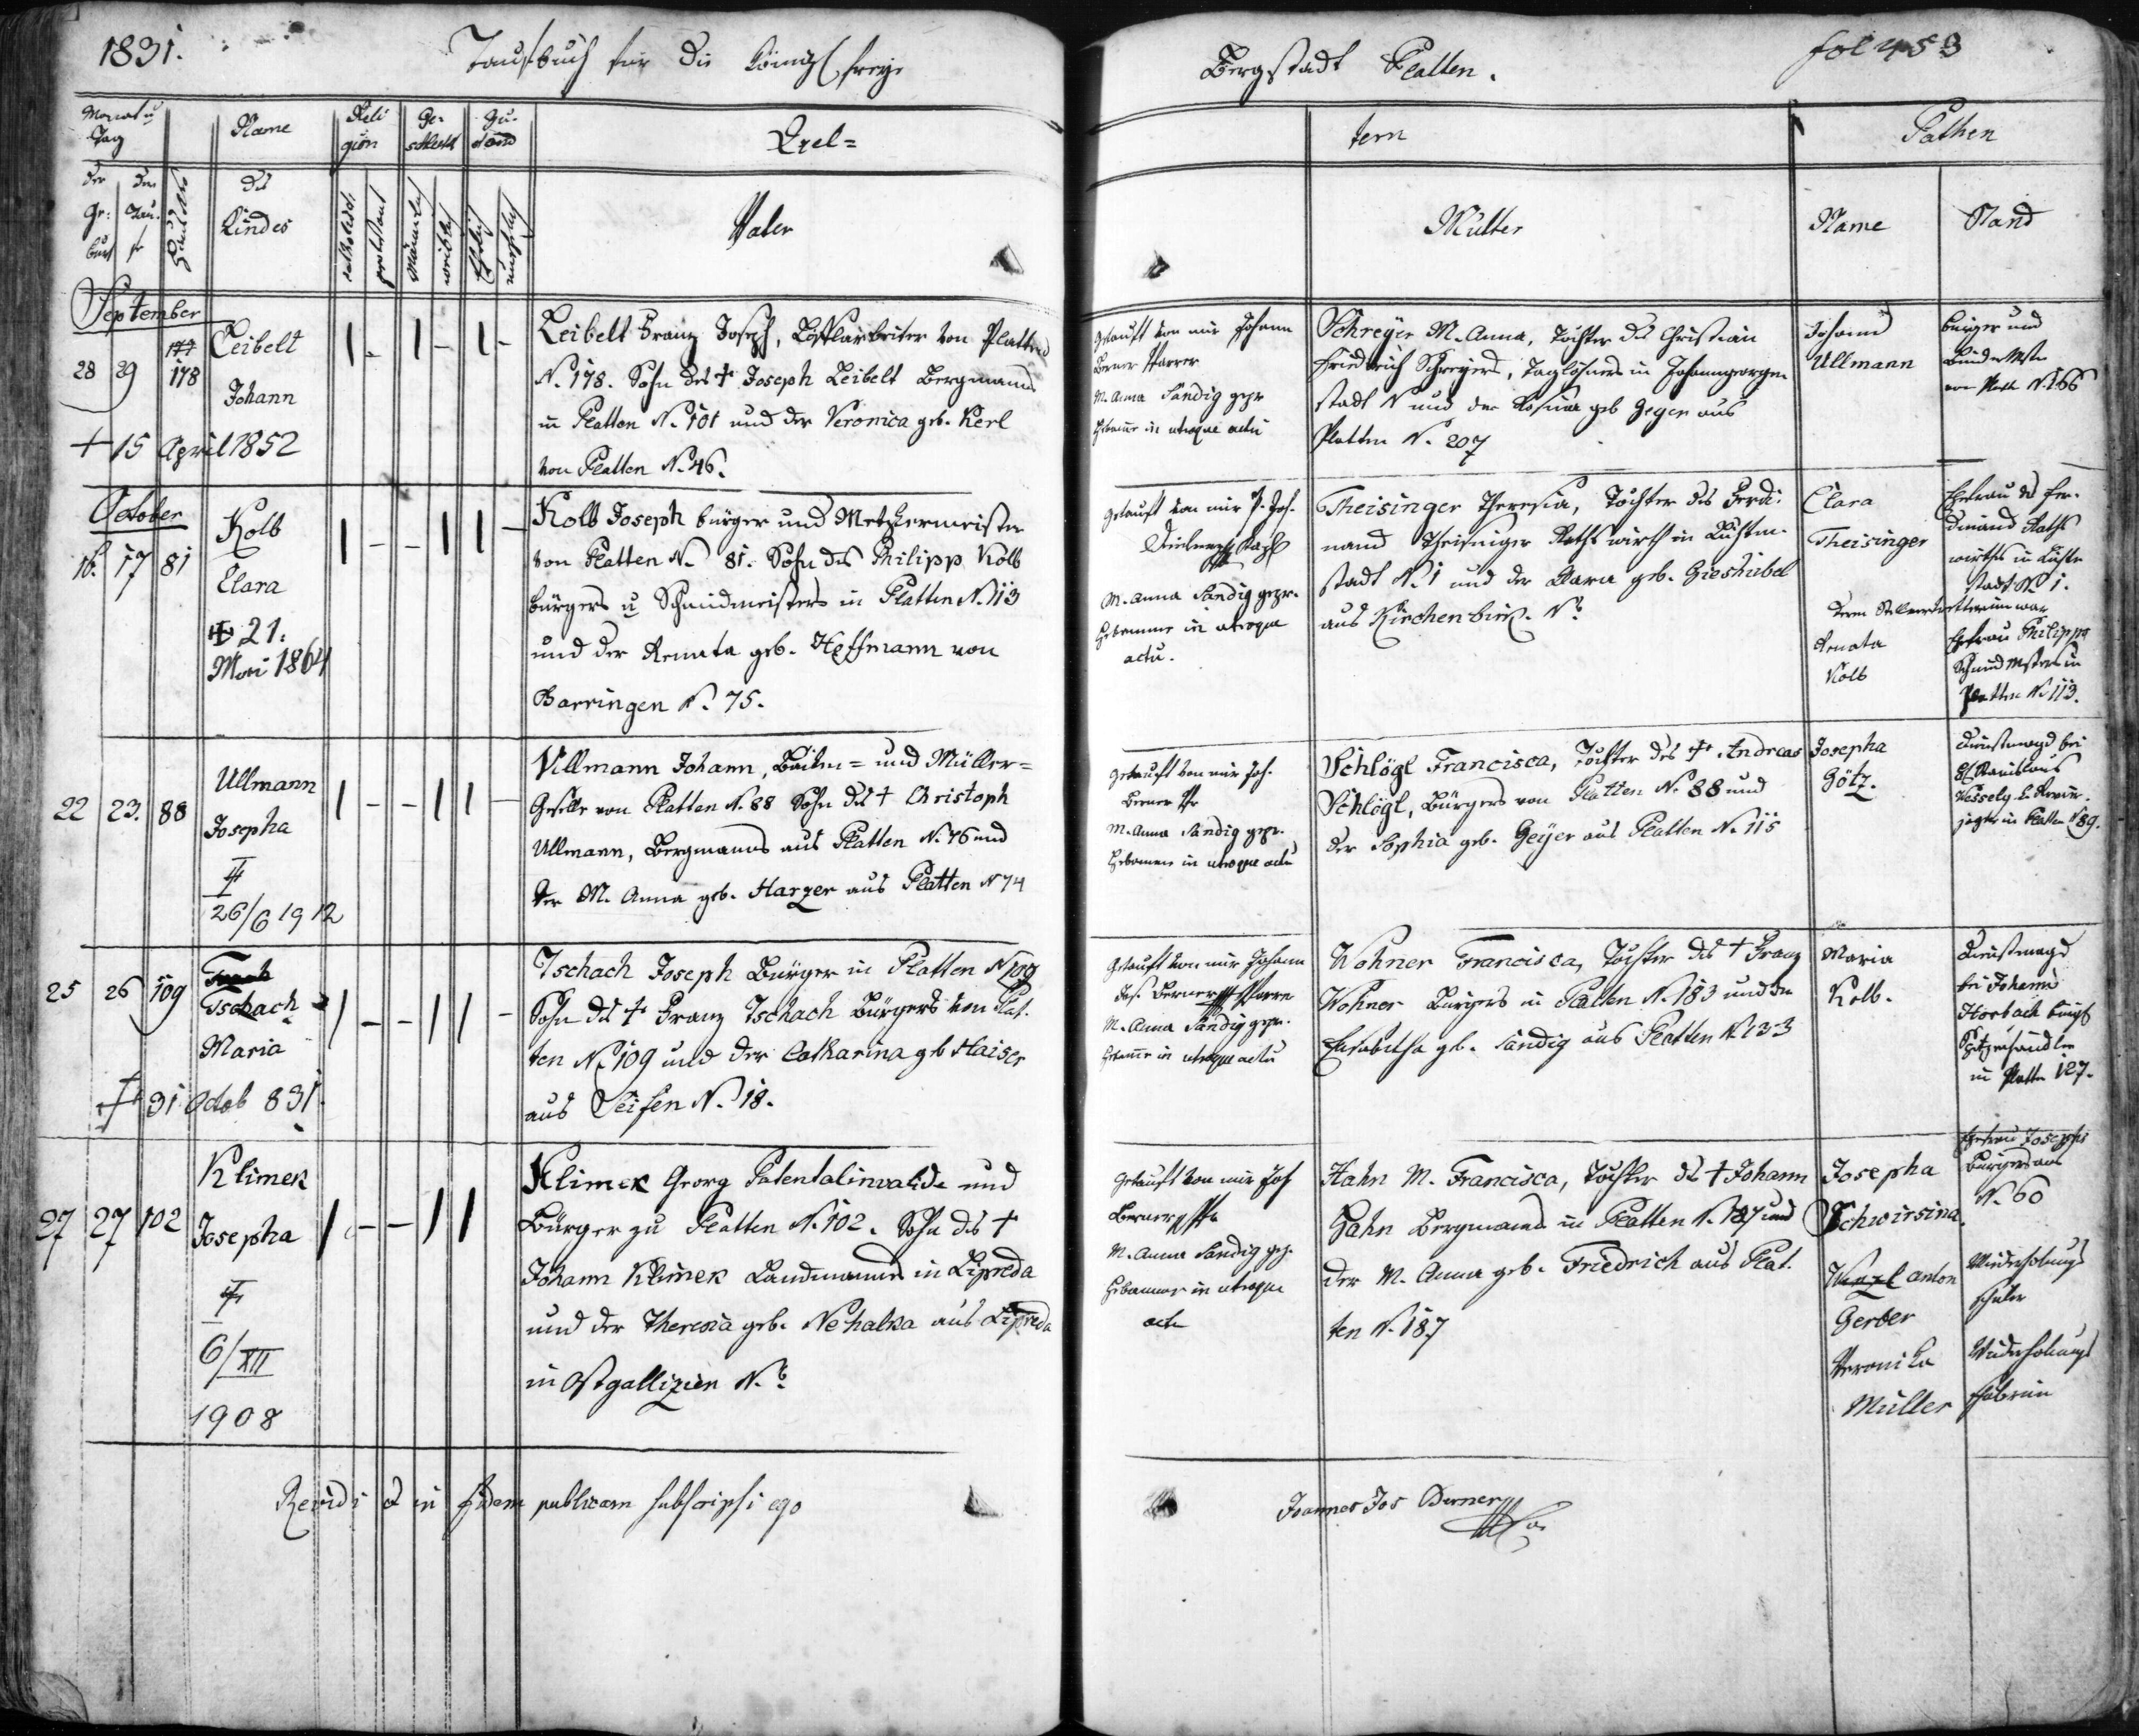 1831.
Taufbuch für die Königl freye
Bergstadt Platten.
fol 453
Monat u
Tag
Name
Reli
gion
Ge-
schlecht
Zu-
stand
Eltel=
tern
Pathen
der
Ge-
burt
der
Tau-
fe
Haus Nro
des
Kindes
katholisch
protestant
Männlich
weiblich
ehelich
unehelich
Vater
Mutter
Name
Stand
September
28 29 177
178
Leibelt
Johann
+ 15 April 1852
Leibelt Franz Joseph, von Platten
N. 178. Sohn des + Joseph Leibelt Bergmanns
in Platten N. 101 und der Veronica geb. Kerl
von Platten N. 46.
Getauft von mir Johann
Berner Pfarrer
M. Anna Sandig gepr
Hebamme in utroque actu
Schreyer M. Anna, Tochter des Christian
Friedrich Schreyers, Taglöhners in Johanngeorgen
stadt N und der Rosina geb Geyer aus
Platten N. 207
Johann
Ullmann
Bürger und
von Platt N. 166
October
16. 17 81
Kolb
Clara
+ 21.
Mai 1864
Kolb Joseph bürger und Metzgermeister
von Platten N. 81. Sohn des Philipp Kolb
bürgers u Schmidmeisters in Platten N. 113
und der Renata geb. Hoffmann von
Barringen N. 75.
Getauft von mir P. Jos.
M. Anna Sandig gepr.
Hebamme in utroque
actu.
Theisinger Theresia, Tochter des Ferdi-
nand Theisinger Rathswirth in
stadt N. 1 und der Clara geb. Gieshübel
aus Kirchenbirk. N.
Clara
Theisinger
Ehefrau des Fer-
dinand Raths
wirths in
stadt N 1.
deren Stellvertretterin war
Renata
Kolb
Ehefrau Philipps
Schmid Msters in
Platten N. 113.
22 23. 88
Ullmann
Josepha
+
26/6 1912
Ullmann Johann, = und Müller=
Geselle von Platten N. 88 Sohn des + Christoph
Ullmann, Bergmanns aus Platten N. 76 und
der M. Anna geb. Harzer aus Platten N 74
Getauft von mir Jos.
Berner Pfr
M. Anna Sandig gepr.
Hebamme in utroque actu
Schlögl Francisca, Tochter des + Andreas
Schlögl, Bürgers von Platten N. 88 und
der Sophia geb. Geyer aus Platten N. 115
Josepha
Götz.
Dienstmagd bei
H Stanislaus
Wessely k. Revier-
jäger in Platten N 89.
25 26 109
Tschach
Maria
+ 31 Octob 831.
Tschach Joseph Bürger in Platten N 109
Sohn des + Franz Tschach Bürgers von Plat-
ten N. 109 und der Catharina geb Haiser
aus Seifen N. 18.
Getauft von mir Johann
Jos. Berner Pfarrer
M. Anna Sandig gepr.
Hebamme in utroque actu
Wohner Francisca, Tochter des + Franz
Wohner Bürgers in Platten N. 183 und der
Elisabetha geb. Sandig aus Platten N. 133
Maria
Kolb.
Dienstmagd
bei Johann
Horbach bürgl
Spitzenhändler
in Platten 127.
27 27 102
Klimek
Josepha
+
6/XII
1908
Klimek Georg Patentalinvalide und
Bürger zu Platten N. 102. Sohn des +
Johann Klimek Landmanns in Lipreda
und der Theresia geb. Nehalka aus Lipreda
in Ostgallizien N.
Getauft von mir Jos
Berner Pfr
M. Anna Sandig gep.
Hebamme in utroque
actu
Hahn M. Francisca, Tochter des + Johann
Hahn Bergmanns in Platten N. 187 und
der M. Anna geb. Friedrich aus Plat-
ten N. 187
Josepha
Schwirsina.
Ehefrau Josephs
Bürgers aus
N. 60
Wenzl Anton
Gerber
Wiederholungs
schüler
Veronika
Müller
Wiederholungs
schülerin
Revidi et in fidem publicam subscripsi ego
Joannes Jos Berner